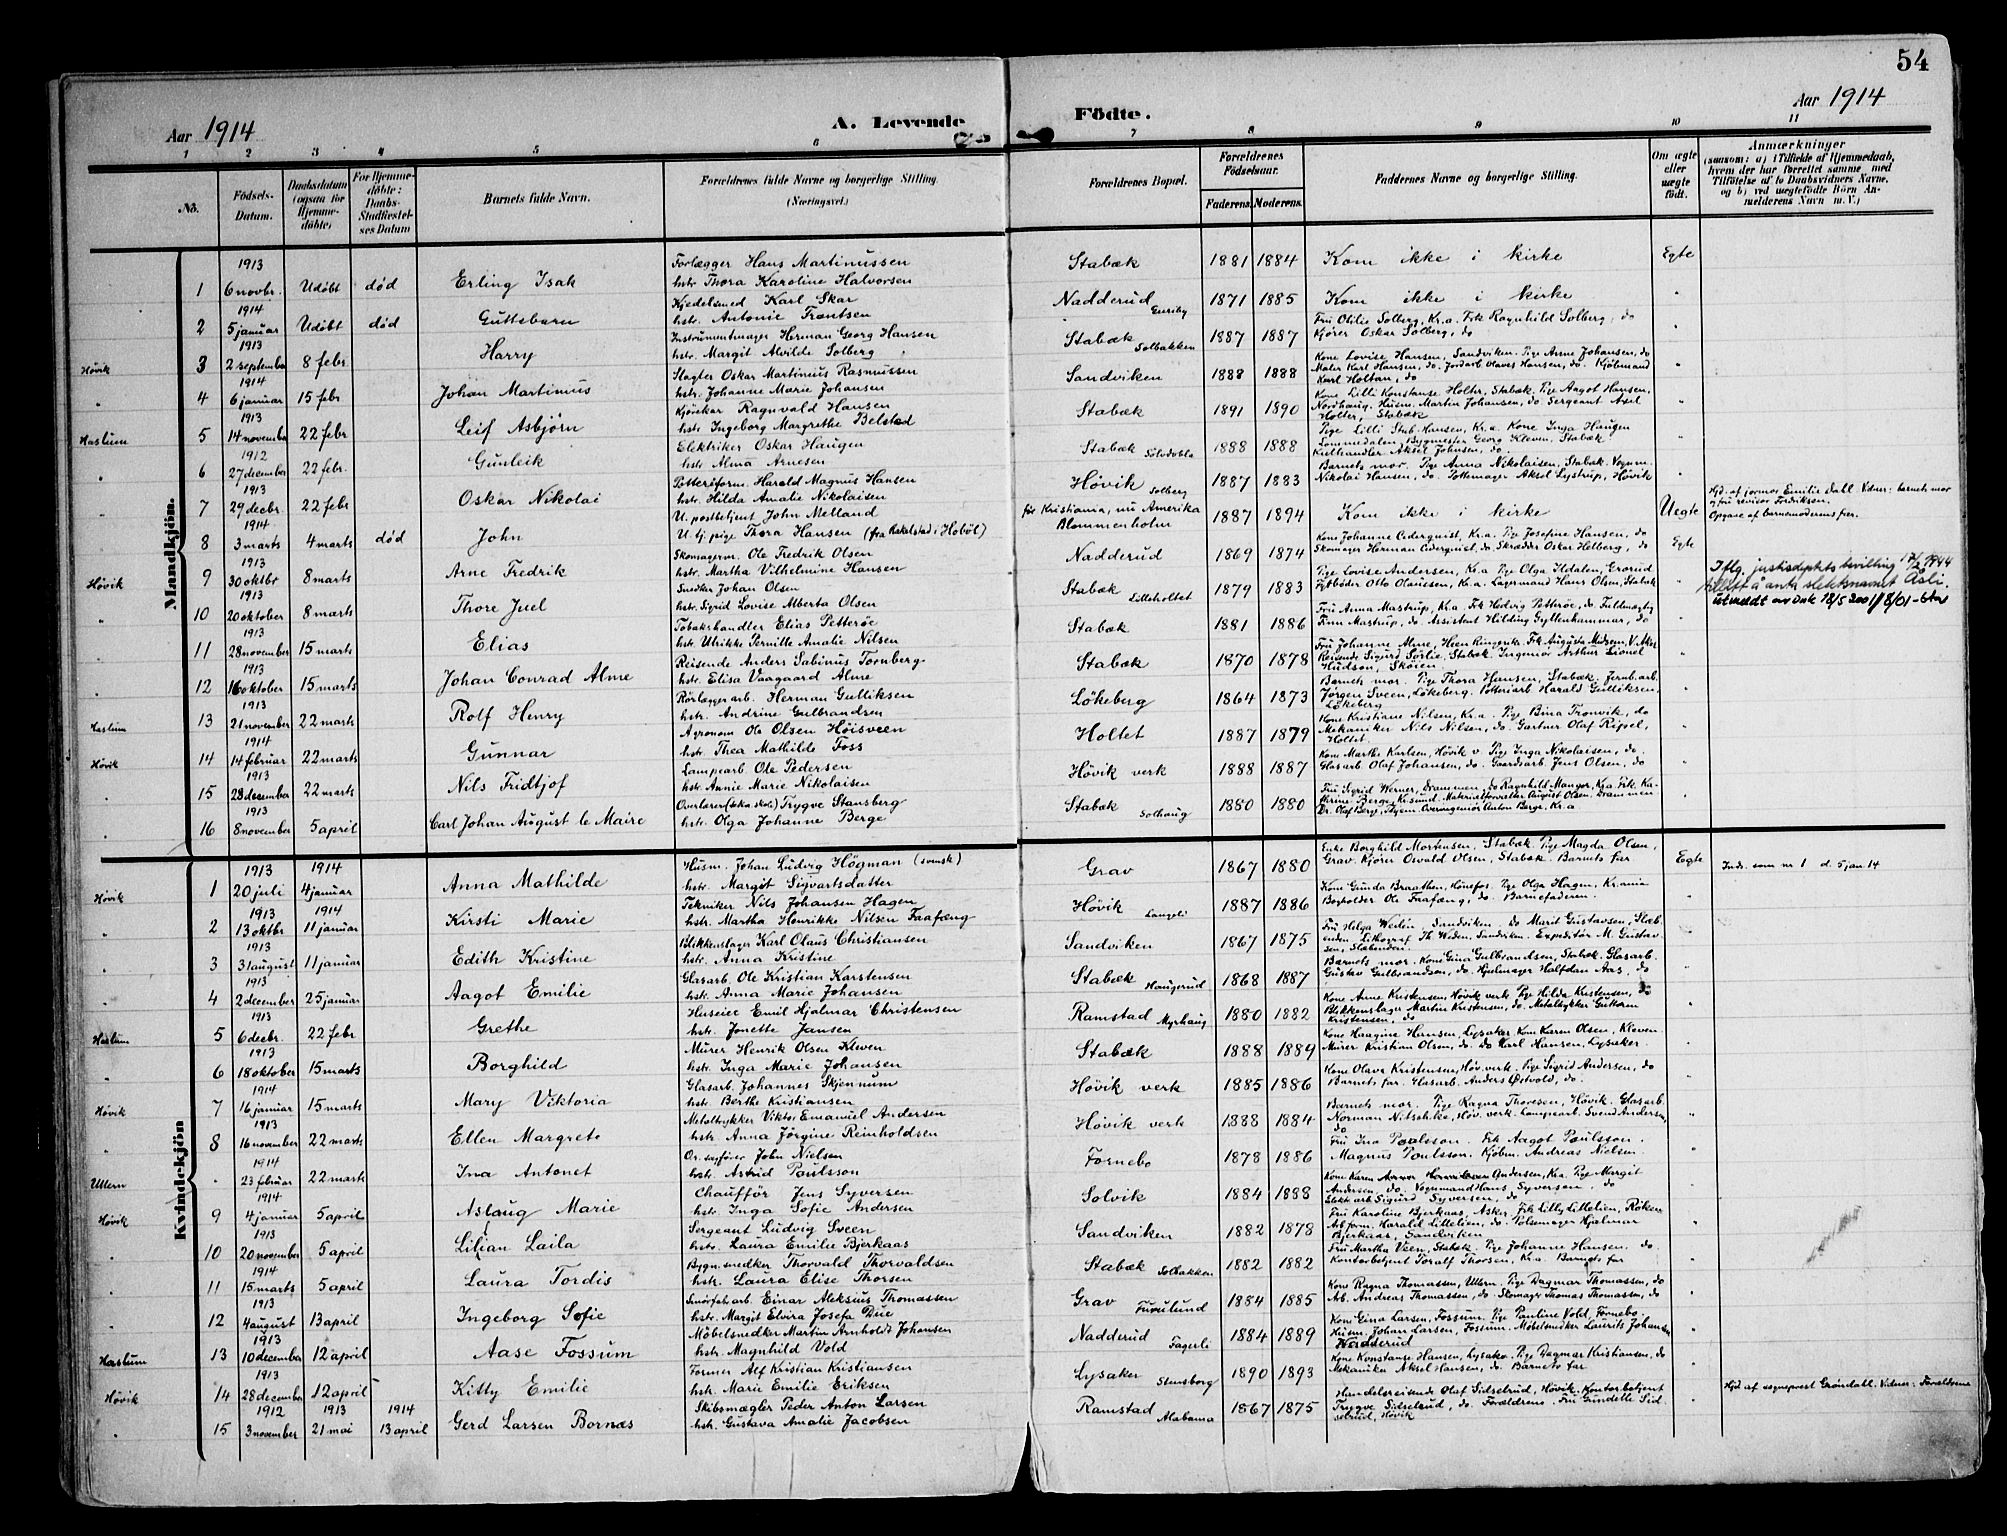 54
Aar 1914
A. Levende
Födte.
Aar 1914
1 2 3 4 5 6 7 8 9 10 11
No.
Födsels-Datum.
Daabsdatum (ogsaa for Hjemme-döbte)
For Hjemme-döbte: Daabs-Stadfæstel-ses Datum
Barnets fulde Navn.
Forældrenes fulde Navne og borgerlige Stilling. (Næringsvei.)
Forældrenes Bopæl.
Forældrenes Födselsaar.
Faderens. Moderens.
Faddernes Navne og borgerlige Stilling.
Om ægte eller uægte födt.
Anmærkninger
(saasom: a) i Tilfælde af Hjemmedaab, hvem der har forrettet samme med Tilföielse af to Daabsvidners Navne, og b) ved uegtefödte Börn An-melderens Navn m. V.)
Mandkjön.
1 1913 6 novbr. Udöbt død Erling Isak Forlægger Hans Martinussen hstr. Thora Karoline Halvorsen Stabæk 1881 1884 Kom ikke i kirke Egte
2 1914 5 januar Udöbt død Guttebarn Kjedelsmed Karl Skar hstr. Antonie Frantsen Nadderud 1871 1885 Kom ikke i kirke "
Høvik 3 1913 2 september 8 febr Harry Instrumentmager Herman Georg Hansen hstr. Margit Alvilde Solberg Stabæk Solbakken 1887 1887 Fru Otilie Solberg, Kr.a. Frk Ragnhild Solberg, do Kjører Oskar Solberg, do "
" 4 1914 6 januar 15 febr Johan Martinus Slagter Oskar Martinius Rasmussen hstr. Johanne Marie Johansen Sandviken 1888 1888 Kone Lovise Hansen, Sandviken. Pige Anne Johansen, do Maler Karl Hansen, do. Jordarb. Olaves Hansen, do. Kjøbmand Karl Holtan, do "
Haslum 5 1913 14 november 22 febr Leif Asbjørn Kjørekar Ragnvald Hansen hstr. Ingeborg Margrethe Belstad Stabæk 1891 1890 Kone Lilli Konstanse Holter, Stabæk. Pige Aagot Hansen, Nordhaug. Husm. Martin Johansen, do. Sergeant Axel Holter, Stabæk "
" 6 1912 27 december 22 febr. Gunleik Elektriker Oskar Haugen hstr. Alma Arnesen Stabæk 1888 1888 Pige Lilli Stub-Hansen, Kr.a. Kone Inga Haugen Lommedalen. Bygmester Georg Kleven, Stabæk Kulhandler Aksel Johnsen, do. "
" 7 1913 29 decbr. 22 febr Oskar Nikolai Potteriform. Harald Magnus Hansen hstr. Hilda Amalie Nikolaisen Høvik Solberg 1887 1883 Barnets mor. Pige Anna Nikolaisen, Stabæk. Vognm. Nikolai Hansen, do. Pottemager Aksel Lystrup, Høvik "
8 1914 3 marts 4 marts død John U. postbetjent John Melland U. tj. pige Thora Hansen (fra Rakelstad i Hobøl) før Kristiania, nu Amerika Blommenholm 1887 1894 Kom ikke i kirke Uegte Hjd. af jormor Emilie Dahl. Vidner: barnets mor og fru revisor Fredriksen. Opgave af barnemoderens far.
Høvik 9 1913 30 oktbr 8 marts Arne Fredrik Skomagerm. Ole Fredrik Olsen hstr. Martha Vilhelmine Hansen Nadderud 1869 1874 Kone Johanne Cederquist, Kr.a. Pige Josefine Hansen, do Skomager Herman Cederquist, do. Skrædder Oskar Helberg, do Egte
" 10 1913 20 oktober 8 marts Thore Juel Snedker Johan Olsen hstr. Sigrid Lovise Alberta Olsen Stabæk Lilleholtet 1879 1883 Pige Lovise Andersen, Kr.a. Pige Olga Ildalen, Grorud Fyrbøder Otto Olausen, Kr.a. Lagermand Hans Olsen, Stabæk " Iflg. justisdeptets bevilling 1944 tillatt å anta slektsnavnet Åsli. utmeldt av Dnk 18/5 2001
" 11 1913 28 november 15 marts Elias Tobakshandler Elias Petterøe hstr. Ulrikke Pernille Amalie Nilsen Stabæk 1881 1886 Fru Anna Mastrup, Kr.a. Frk Hedvig Petterøe, do Fuldmægtig Finn Mastrup, do Assistent Hilding Gyllenhammar, do "
" 12 1913 16 oktober 15 marts Johan Conrad Alme Reisende Anders Sabinus Tornberg hstr. Elisa Vaagaard Alme Stabæk 1870 1878 Fru Johanne Alme, Ringerike. Frk Augusta Madsen, V. Aker Reisende Sigurd Sørlie, Stabæk. Ingeniør Arthur Lionel Hudson, Skøien. "
Haslum 13 1913 21 november 22 marts Rolf Henry Rörlæggerarb. Herman Gulliksen hstr. Andrine Gulbrandsen Løkeberg 1864 1873 Barnets mor. Pige Thora Hansen, Stabæk. Jernb.arb. Jørgen Sveen, Løkeberg. Potteriarb Harald Gulliksen, Løkeberg "
Høvik 14 1914 14 februar 22 marts Gunnar Agronom Ole Olsen Höisveen hstr. Thea Mathilde Foss Holtet 1887 1879 Kone Kristiane Nilsen, Kr.a. Pige Bina Tronvik, do Mekaniker Nils Nilsen, do. Gartner Olaf Ripel, Holtet. "
" 15 1913 28 december 22 marts Nils Fridtjof Lampearb. Ole Pedersen hstr. Annie Marie Nikolaisen Høvik verk 1888 1887 Kone Marthe Karlsen, Høvik v. Pige Inga Nikolaisen, do. Glasarb. Olaf Johansen, do. Gaardsarb Jens Olsen, do "
" 16 1913 8 november 5 april Carl Johan August le Maire Overlærer Trygve Stansberg hstr. Olga Johanne Berge Stabæk Solhaug 1880 1880 Fru Sigrid Werner, Drammen, do Ragnhild Mangor, Kr.a. Frk. Kathrine Berge, Kr.sund. Materialforvalter August Olsen, Drammen Dr. Olaf Berge, Overingeniør Anton Berge, Kr.a "
Kvindekjön
Høvik 1 1913 20 juli 1914 4 januar Anna Mathilde Husm. Johan Ludvig Högman (svensk) hstr. Margit Sigvartsdatter Grav 1867 1880 Enke Borghild Mortensen, Stabæk Pige Magda Olsen, Grav. Kjører Osvald Olsen, Stabæk. Barnets far Egte Inds. som nr 1 d. 5 jan. 14
" 2 1913 13 oktbr 1914 11 januar Kirsti Marie Tekniker Nils Johansen Hagen hstr. Martha Henrikke Nilsen Faafæng Høvik Langeli 1887 1886 Kone Gunda Braathen, Hønefos. Pige Olga Hagen, Kr.ania Bogholder Ole Faafæng, do. Barnefaderen. "
" 3 1913 31 august 11 januar Edith Kristine Blikkenslager Karl Olaus Christiansen hstr. Anna Kristine Sandviken 1867 1875 Fru Helga Wedén Sandviken. Do Marit Gustavsen, Slæbenden Lithograf Th. Weden, Sandviken. Expeditør M. Gustavsen, Slæbenden. "
" 4 1913 2 december 25 januar Aagot Emilie Glasarb. Ole Kristian Karstensen hstr. Anna Marie Johansen Stabæk Haugerud 1868 1887 Barnets mor. Kone Gina Gulbrandsen, Stabæk. Glasarb. Gustav Gulbrandsen, do, Hjulmager Halfdan Aas, do "
Haslum 5 1913 6 decbr. 22 febr Grethe Huseier Emil Hjalmar Christensen hstr. Jonette Jansen Ramstad Myrhaug 1880 1882 Kone Anne Kristensen, Høvik verk Pige Hilda Kristensen, do Blikkenslager Martin Kristensen, do. Metaltrykker Guttorm Kristensen, do "
" 6 1913 18 oktober 15 marts Borghild Murer Henrik Olsen Kleven hstr. Inga Marie Johansen Stabæk 1888 1889 Kone Haagine Hansen, Lysaker. Kone Karen Olsen, Kleven Murer Kristian Olsen, do. Do Karl Hansen, Lysaker "
Høvik 7 1914 16 januar 15 marts Mary Viktoria Glasarb. Johannes Skjennum hstr. Berthe Kristiansen Høvik verk 1885 1886 Kone Olava Kristensen, Høv. verk. Pige Sigrid Andersen, do Barnets far. Glasarb. Anders Østvold, do. "
" 8 1913 16 november 22 marts Ellen Margrete Metaltrykker Viktor Emanuel Andersen hstr. Anna Jörgine Reinholdsen Høvik verk 1888 1884 Barnets mor. Pige Ragna Thoresen, Høvik. Glasarb. Norman Nitschke, Høv. verk. Lampearb. Svend Andersen, do "
Ullern " 1914 23 februar 22 marts Ina Antonet Or. sagfører John Nielsen hstr. Astrid Paulsson Fornebo 1878 1886 Fru Ina Poulsson. Frk Aagot Poulsson. Magnus Poulsson. Kjøbm. Andreas Nielsen. "
Høvik 9 1914 4 januar 5 april Aslaug Marie Chauffør Jens Syversen hstr. Inga Sofie Andersen Solvik 1884 1888 Kone Karen Andersen, Kr.a. Pige Margit Andersen, do. Vognmand Hans Syversen, do Elekt. arb Sigurd Syversen, do "
" 10 1913 20 november 5 april Lilian Laila Sergeant Ludvig Sveen hstr. Laura Emilie Bjerkaas Sandviken 1882 1878 Fru Karoline Bjerkaas, Asker. Frk Lilly Lillelien, Röken Arb.form. Harald Lillelien, do. Pølsemager Hjalmar Bjerkaas, Sandviken "
" 11 1914 15 marts 5 april Laura Tordis Bygn.smedker Thorvald Thorvaldsen hstr. Laura Elise Thorsen Stabæk Solbakken 1882 1882 Fru Martha Veen, Stabæk. Pige Johanne Hansen. do. Kontorbetjent Toralf Thorsen, Kr.a. Barnets far "
" 12 1913 4 august 13 april Ingeborg Sofie Smörfab.arb. Einar Aleksius Thomassen hstr. Margit Elvira Josefa Due Grav Furulund 1884 1885 Kone Ragna Thomassen, Ullern. Pige Dagmar Thomassen, do Arb. Andreas Thomassen, do. Skomager Thomas Thomassen, do "
Haslum 13 1913 10 december 12 april Aase Fossum Möbelsnedker Martin Arnholdt Johansen hstr. Magnhild Vold Nadderud Fagerli 1884 1889 Kone Gina Larsen, Fossum. Pige Pauline Vold, Fornebo. Husm. Johan Larsen, Fossum. Møbelsnedker Laurits Johansen Nadderud "
Høvik 14 1913 28 december 12 april Kitty Emilie Former Alf Kristian Kristiansen hstr. Marie Emilie Eriksen Lysaker Stensborg 1890 1893 Kone Konstanse Hansen, Lysaker. Pige Dagmar Kristiansen, do Mekaniker Aksel Hansen, do. Barnets far "
" 15 1912 3 november 1913 21 mai 1914 13 april Gerd Larsen Bornæs Skibsmægler Peder Anton Larsen hstr. Gustava Amalie Jacobsen Ramstad Alabama 1867 1875 Handelsreisende Olaf Sidselrud, Høvik. Kontorbetjent Trygve Sidselrud, do. Forældrene. Fru Gundelle Sidselrud, Høvik " Hjd af sogneprest Grøndahl. Vidner: Forældrene